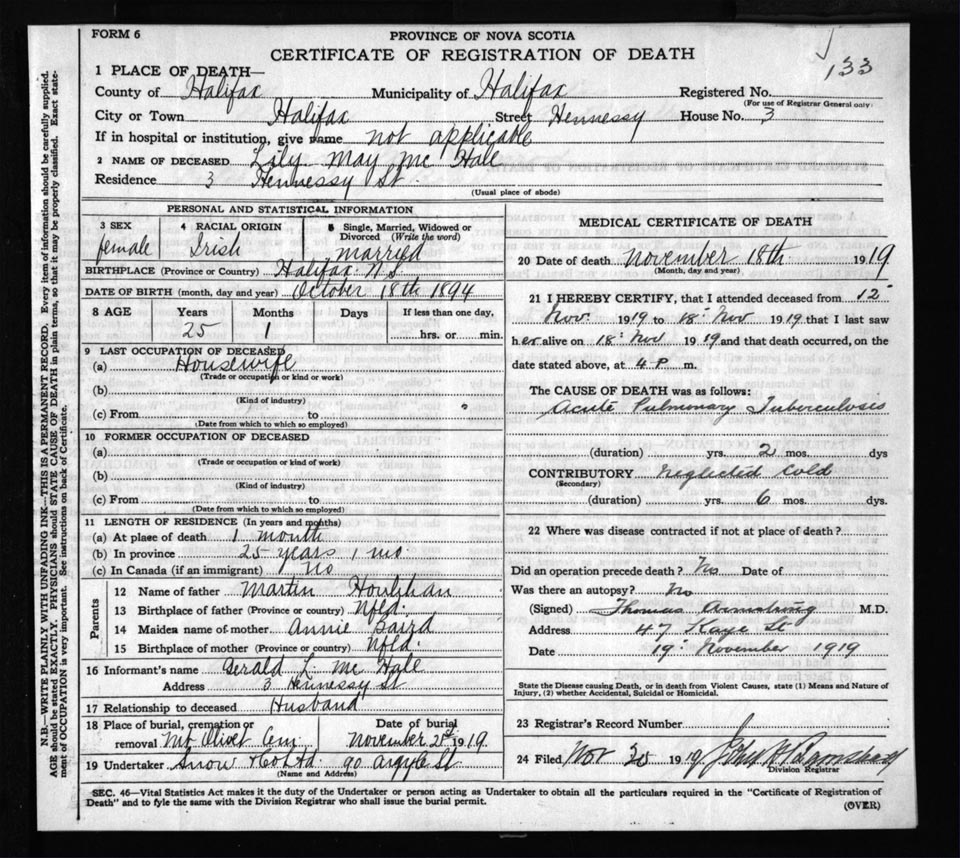 FORM 6
PROVINCE OF NOVA SCOTIA
CERTIFICATE OF REGISTRATION OF DEATH
133
1 PLACE OF DEATH—
County of Halifax Municipality of Halifax Registered No.
(For use of Registrar General only)
City or Town Halifax Street Hennessy House No. 3
If in hospital or institution, give name not applicable
2 NAME OF DECEASED Lily May Mc Hale
Residence 3 Hennessy St.
(Usual place of abode)
PERSONAL AND STATISTICAL INFORMATION
3 SEX female
4 RACIAL ORIGIN Irish
5 Single, Married, Widowed or Divorced (Write the word) married
BIRTHPLACE (Province or Country) Halifax N.S.
DATE OF BIRTH (month, day and year) October 18th 1894
8 AGE Years Months Days If less than one day,
25 1 hrs. or min.
9 LAST OCCUPATION OF DECEASED
(a) Housewife
(Trade or occupation or kind or work)
(b)
(Kind of industry)
(c) From to
(Date from which to which so employed)
10 FORMER OCCUPATION OF DECEASED
(a)
(Trade or occupation or kind of work)
(b)
(Kind of industry)
(c) From to
(Date from which to which so employed)
11 LENGTH OF RESIDENCE (In years and months)
(a) At place of death 1 month
(b) In province 25 years 1 mo.
(c) In Canada (if an immigrant) No
Parents
12 Name of father Martin Houlihan
13 Birthplace of father (Province or country) Nfld.
14 Maiden name of mother Annie Baird
15 Birthplace of mother (Province or country) Nfld.
16 Informant's name Gerald L. Mc Hale
Address 3 Hennessy St
17 Relationship to deceased Husband
18 Place of burial, cremation or removal Mt Olivet Cem
Date of burial November 21st 1919
19 Undertaker Snow & Co Ltd. 90 Argyle St
(Name and Address)
MEDICAL CERTIFICATE OF DEATH
20 Date of death November 18th 1919
(Month, day and year)
21 I HEREBY CERTIFY, that I attended deceased from 12
Nov 1919 to 18 Nov 1919 that I last saw
her alive on 18 Nov 1919 and that death occurred, on the
date stated above, at 4 P. m.
The CAUSE OF DEATH was as follows:
Acute Pulmonary Tuberculosis
(duration) yrs. 2 mos. dys
CONTRIBUTORY Neglected Cold
(Secondary)
(duration) yrs. 6 mos. dys.
22 Where was disease contracted if not at place of death?
Did an operation precede death? No Date of
Was there an autopsy? No
(Signed) Thomas Armstrong M.D.
Address 47 Kaye St
Date 19 November 1919
State the Disease causing Death, or in death from Violent Causes, state (1) Means and Nature of
Injury, (2) whether Accidental, Suicidal or Homicidal.
23 Registrar's Record Number
24 Filed Nov 20 1919
Division Registrar
SEC. 46—Vital Statistics Act makes it the duty of the Undertaker or person acting as Undertaker to obtain all the particulars required in the "Certificate of Registration of
Death" and to fyle the same with the Division Registrar who shall issue the burial permit.
(OVER)
N.B.—WRITE PLAINLY WITH UNFADING INK—THIS IS A PERMANENT RECORD. Every item of information should be carefully supplied.
AGE should be stated EXACTLY. PHYSICIANS should STATE CAUSE OF DEATH in plain terms, so that it may be properly classified. Exact state-
ment of OCCUPATION is very important. See instructions on back of Certificate.